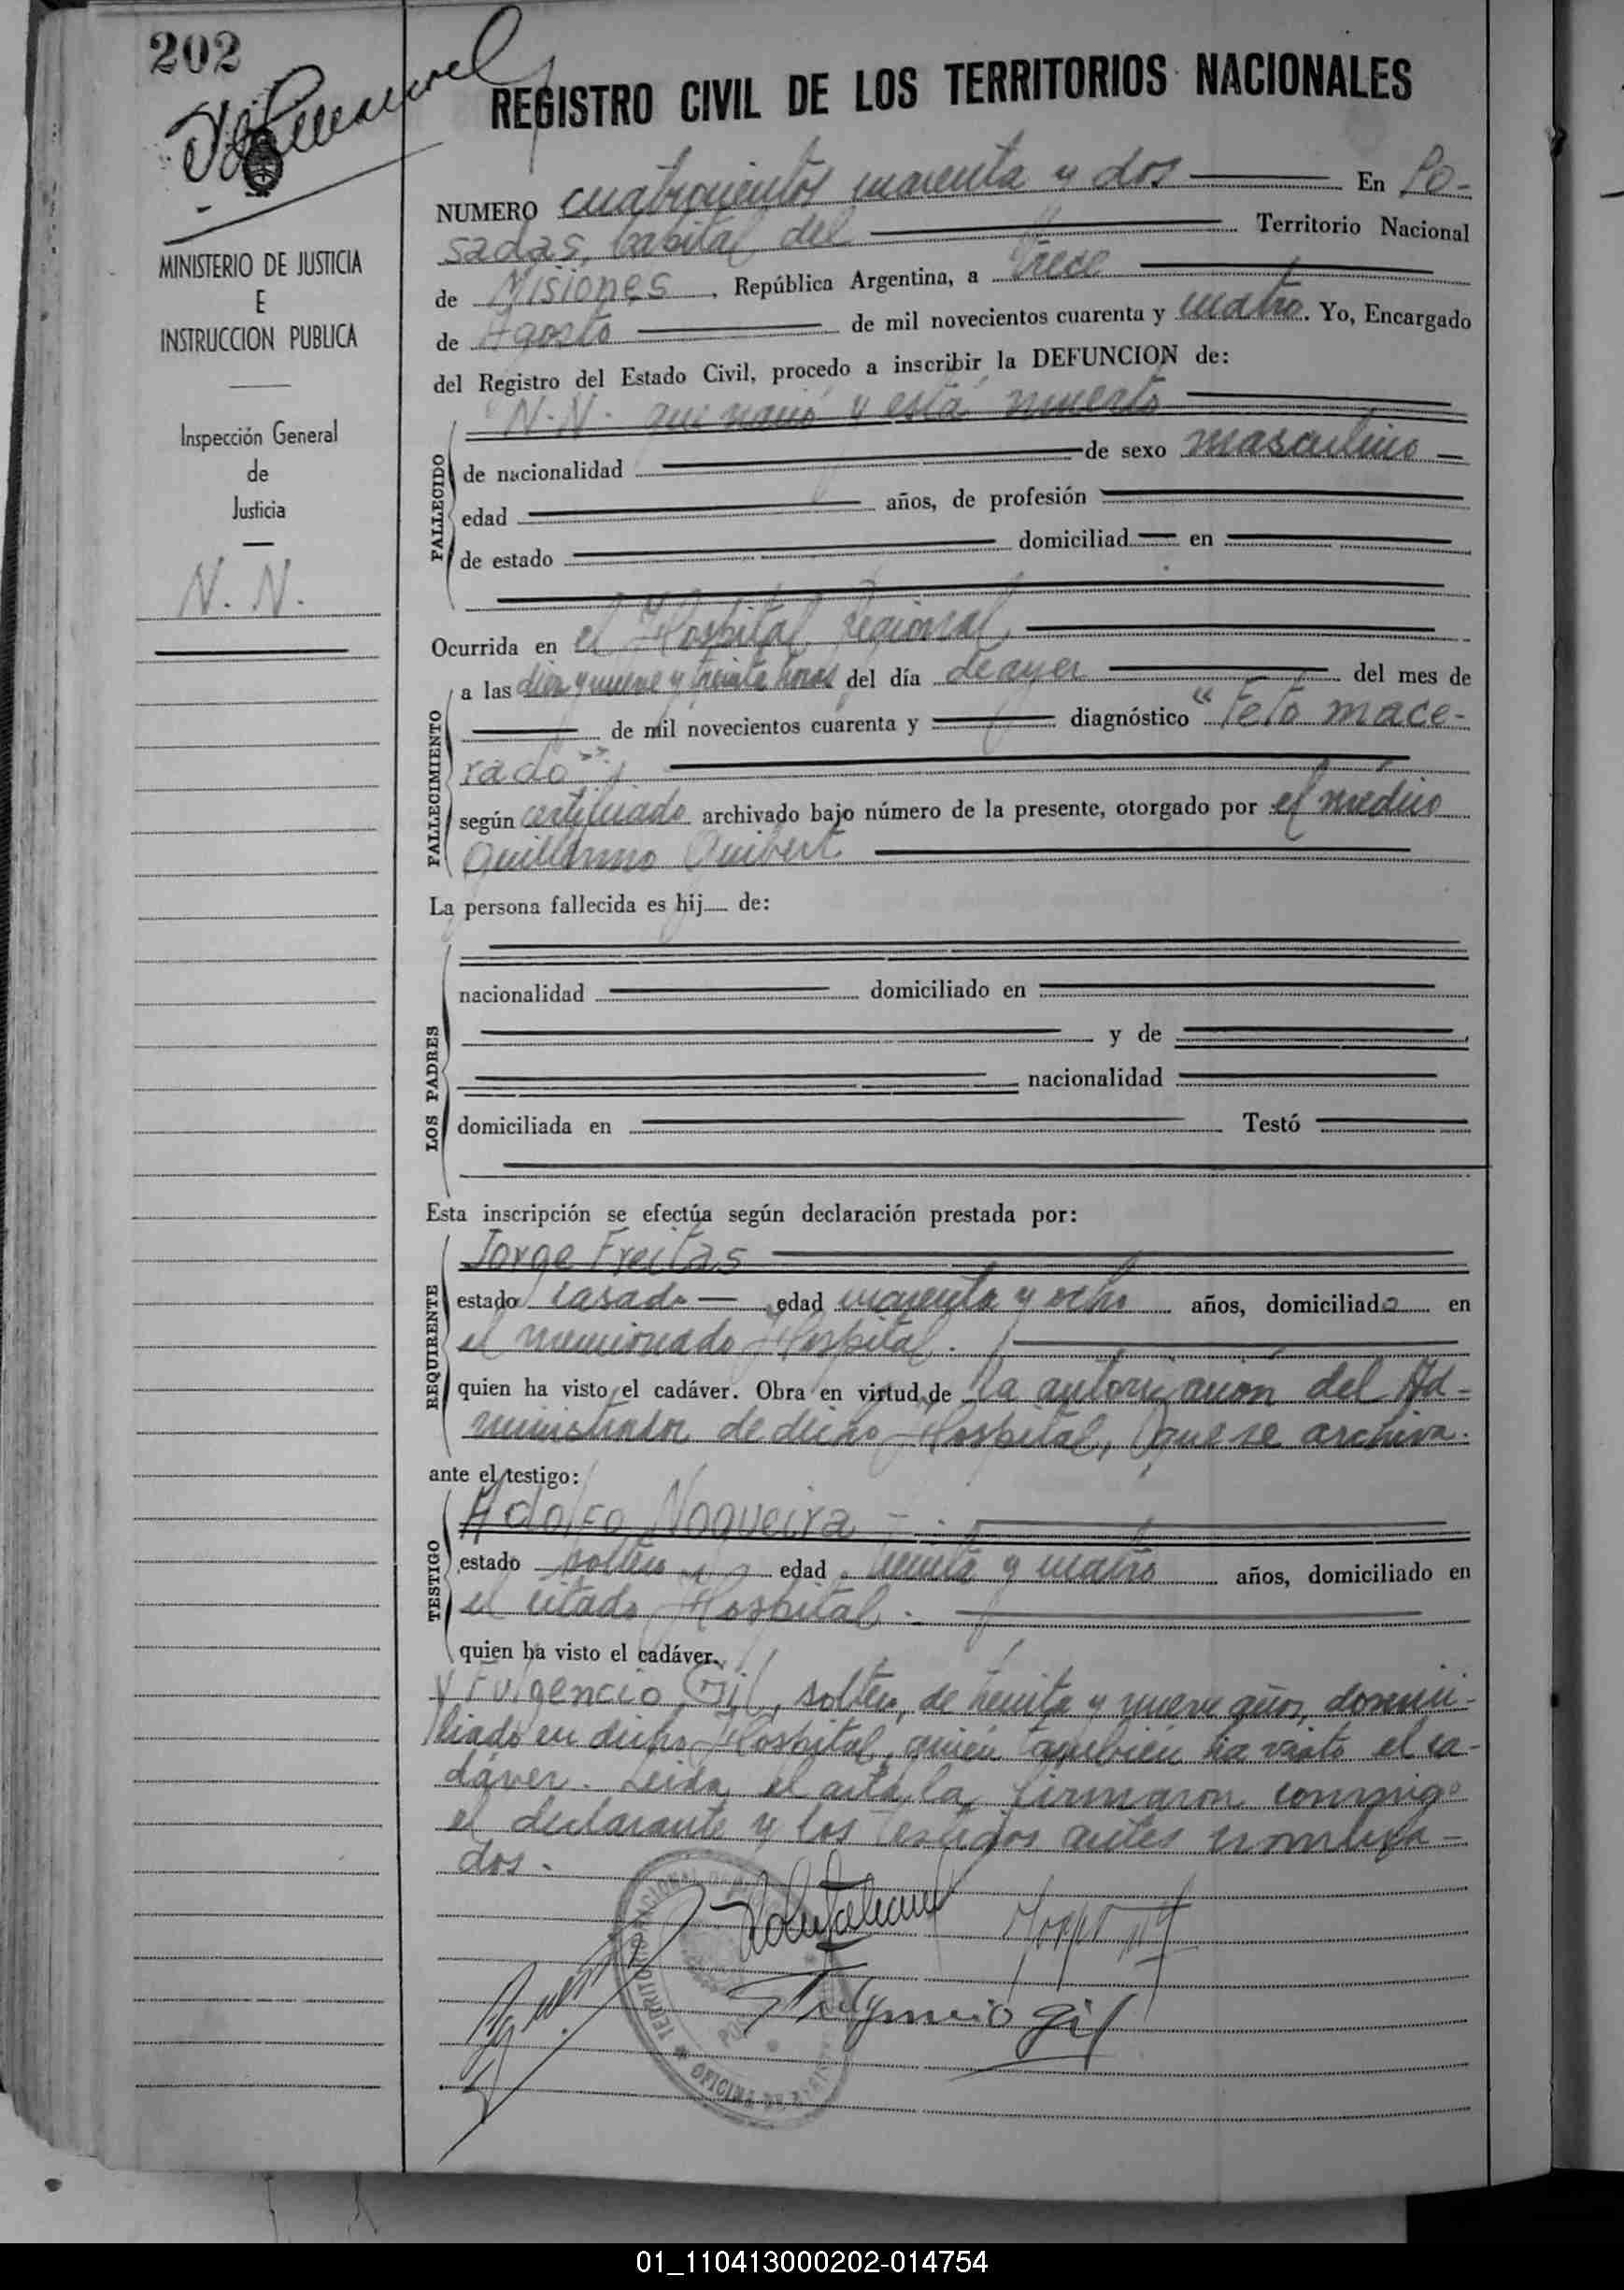 202
REGISTRO CIVIL DE LOS TERRITORIOS NACIONALES
MINISTERIO DE JUSTICIA
E
INSTRUCCION PUBLICA
Inspección General
de
Justicia
N. N.
NUMERO cuatrocientos cuarenta y dos En Po-
sadas, Capital del Territorio Nacional
de Misiones, República Argentina, a trece
de Agosto de mil novecientos cuarenta y cuatro. Yo, Encargado
del Registro del Estado Civil, procedo a inscribir la DEFUNCION de:
N. N. que nació y está muerto
FALLECIDO
de nacionalidad de sexo masculino
edad años, de profesión
de estado domiciliad en
Ocurrida en el Hospital Regional
FALLECIMIENTO
a las diez y nueve y treinta horas del día de ayer del mes de
de mil novecientos cuarenta y diagnóstico "Feto mace-
rado",
según certificado archivado bajo número de la presente, otorgado por el médico
Guillermo Guibert
La persona fallecida es hij de:
LOS PADRES
nacionalidad domiciliado en
y de
nacionalidad
domiciliada en Testó
Esta inscripción se efectúa según declaración prestada por:
REQUIRENTE
Jorge Freitas
estado casado edad cuarenta y ocho años, domiciliado en
el mencionado Hospital.
quien ha visto el cadáver. Obra en virtud de la autorización del Ad-
ministrador de dicho Hospital, que se archiva.
ante el testigo:
TESTIGO
Adolfo Nogueira
estado soltero edad treinta y cuatro años, domiciliado en
el citado Hospital.
quien ha visto el cadáver.
y Fulgencio Gil, soltero, de treinta y nueve años, domici-
liado en dicho Hospital, quien también ha visto el ca-
dáver. Leída el acta, la firmaron conmigo
el declarante y los testigos antes nombra-
dos.
Fulgencio Gil
TERRITORIO NACIONAL
OFICINA
01_110413000202-014754